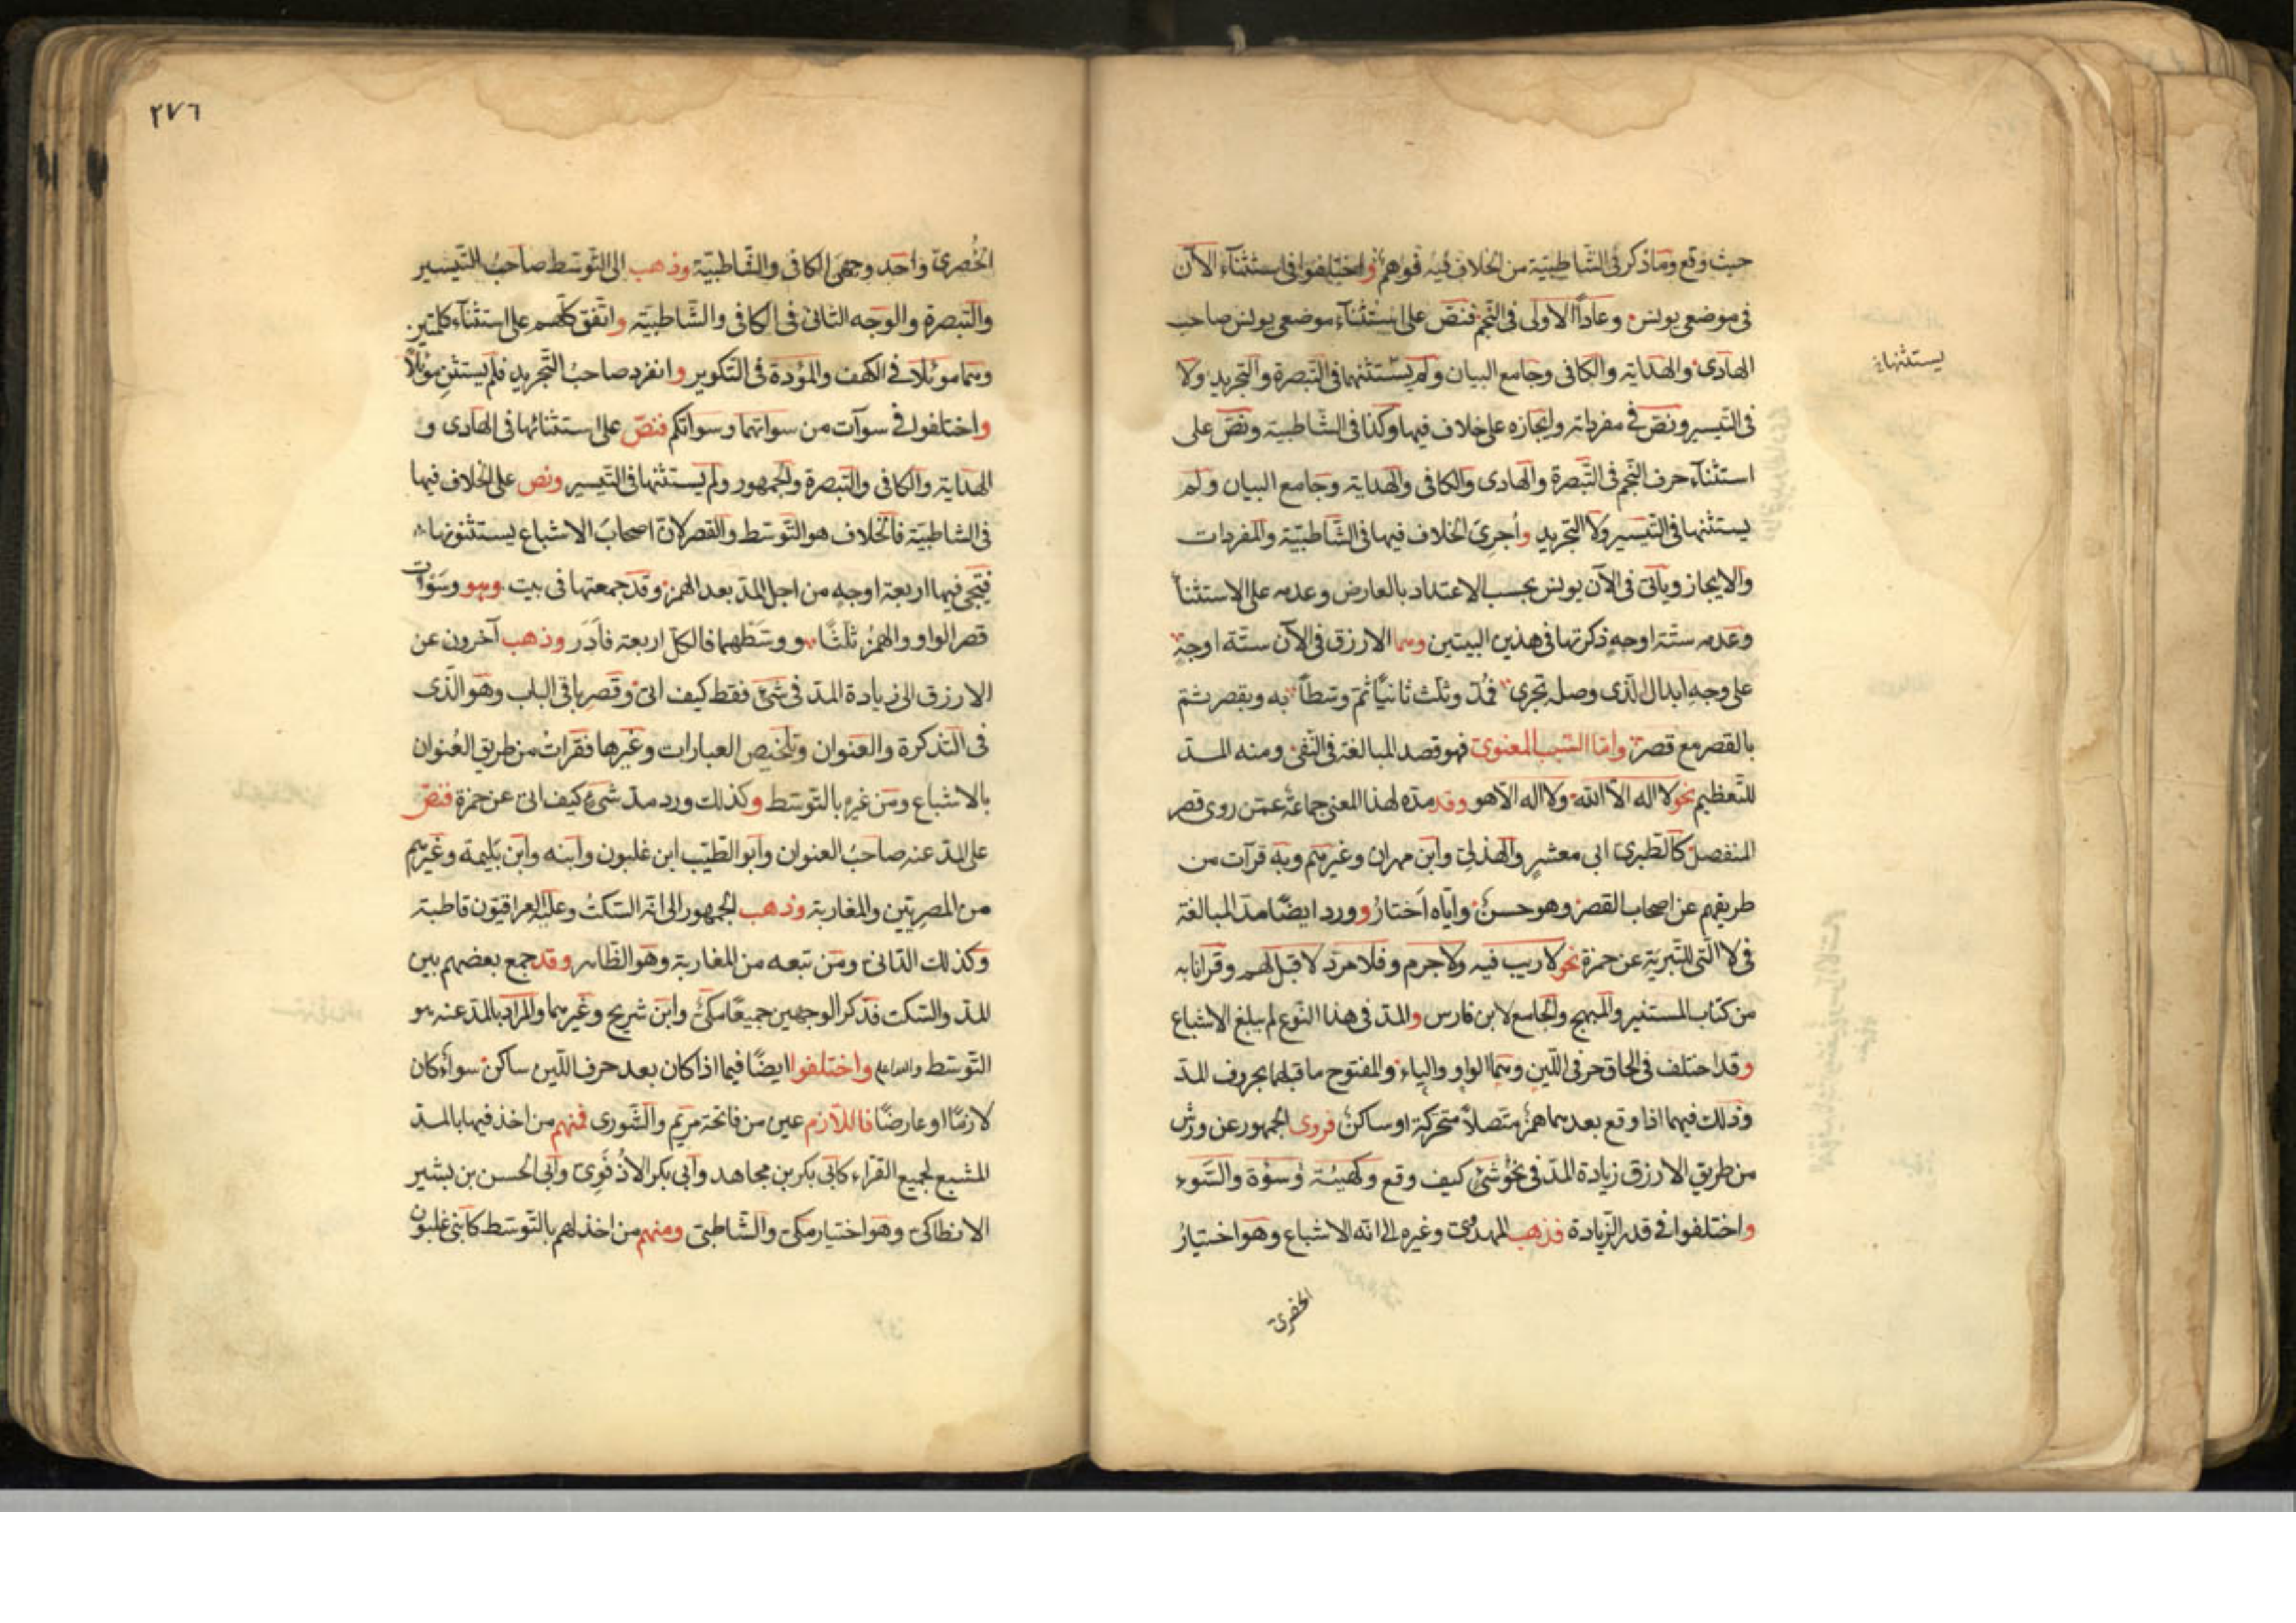 حيث وقع وما ذكر فى الشاطبية من الخلاف فيه فوهم واختلفوا فى استثناء الآن
فى موضعى يونس وعادا الاولى فى النجم فنص على استثناء موضعى يونس صاحب
الهادى والهداية والكافى وجامع البيان ولم يستثنهما فى التبصرة والتجريد ولا
يستثنها
فى التيسير ونص فى مفرداته وايجازه على خلاف فيها وكذا فى الشاطبية ونص على
استثناء حرف النجم فى التبصرة والهادى والكافى والهداية وجامع البيان ولم
يستثنها فى التيسير ولا التجريد وأجرى الخلاف فيها فى الشاطبية والمفردات
والايجاز ويأتى فى الآن يونس بحسب الاعتداد بالعارض وعدمه على الاستثنا
وعدمه ستة اوجه ذكرتها فى هذين البيتين وهما الازرق فى الآن ستة اوجه
على وجه ابدال لذى وصله تجرى فمد وثلث ثانيا ثم وسطا به وبقصر ثم
بالقصر مع قصر واما السبب المعنوى فهو قصد المبالغة فى النفى ومنه المد
للتعظيم نحو لا اله الا الله ولا اله الا هو وقد مده لهذا المعنى جماعة عمن روى قصر
المنفصل كالطبرى ابى معشر والهذلى وابن مهران وغيرهم وبه قرآت من
طريقهم عن اصحاب القصر وهو حسن واياه أختار وورد ايضا مد المبالغة
فى لا التى للتبرية عن حمزة نحو لا ريب فيه ولا جرم وفلا مرد لا قبل لهم وقرأنا به
من كتاب المستنير والمبهج والجامع لابن فارس والمد فى هذا النوع لم يبلغ الاشباع
وقد اختلف فى الحاق حرفى اللين وهما الواو والياء والمفتوح ما قبلهما بحروف المد
وذلك فيما اذا وقع بعدهما همز متصلا متحركة او ساكن فروى الجمهور عن ورش
من طريق الازرق زيادة المد فى نحو شئ كيف وقع وكهيئة وسوءة والسوء
واختلفوا فى قدر الزيادة فذهب المهدوى وغيره الى انه الاشباع وهو اختيار
الحصرى
٢٧٦
الحصرى واحد وجهى الكافى والشاطبية وذهب الى التوسط صاحب التيسير
والتبصرة والوجه الثانى فى الكافى والشاطبية واتفق كلهم على استثناء كلمتين
وهما موئلا فى الكهف والموؤدة فى التكوير وانفرد صاحب التجريد فلم يستثن موئلا
واختلفوا فى سوآت من سوآتهما وسوآتكم فنص على استثنائها فى الهادى و
الهداية والكافى والتبصرة والجمهور ولم يستثنها فى التيسير ونص على الخلاف فيها
فى الشاطبية فالخلاف هو التوسط والقصر لان اصحاب الاشباع يستثنونها
فيجى فيها اربعة اوجه من اجل المد بعد الهمز وقد جمعتها فى بيت وهو وسوآت
قصر الواو والهمز ثلثا ووسطهما فالكل اربعة فأدر وذهب آخرون عن
الازرق الى زيادة المد فى شئ فقط كيف اتى وقصر باقى الباب وهو الذى
فى التذكرة والعنوان وتلخيص العبارات وغيرها فقرأت من طريق العنوان
بالاشباع ومن غيره بالتوسط وكذلك ورد مد شئ كيف اتى عن حمزة فنص
على المد عنه صاحب العنوان وابو الطيب ابن غلبون وابنه وابن بليمة وغيرهم
من المصريين والمغاربة وذهب الجمهور الى انه السكت وعليه العراقيون قاطبة
وكذلك الدانى ومن تبعه من المغاربة وهو الظاهر وقد جمع بعضهم بين
المد والسكت فذكر الوجهين جميعا مكى وابن شريح وغيرهما والمراد بالمد عنه هو
التوسط والله اعلم واختلفوا ايضا فيما اذا كان بعد حرف اللين ساكن سواء كان
لازما او عارضا فاللازم عين من فاتحة مريم والشورى فمنهم من اخذ فيها بالمد
المشبع لجميع القراء كأبى بكر بن مجاهد وأبى بكر الاذفوى وأبى الحسن بن بشير
الانطاكى وهو اختيار مكى والشاطبى ومنهم من اخذ لهم بالتوسط كابنى غلبون